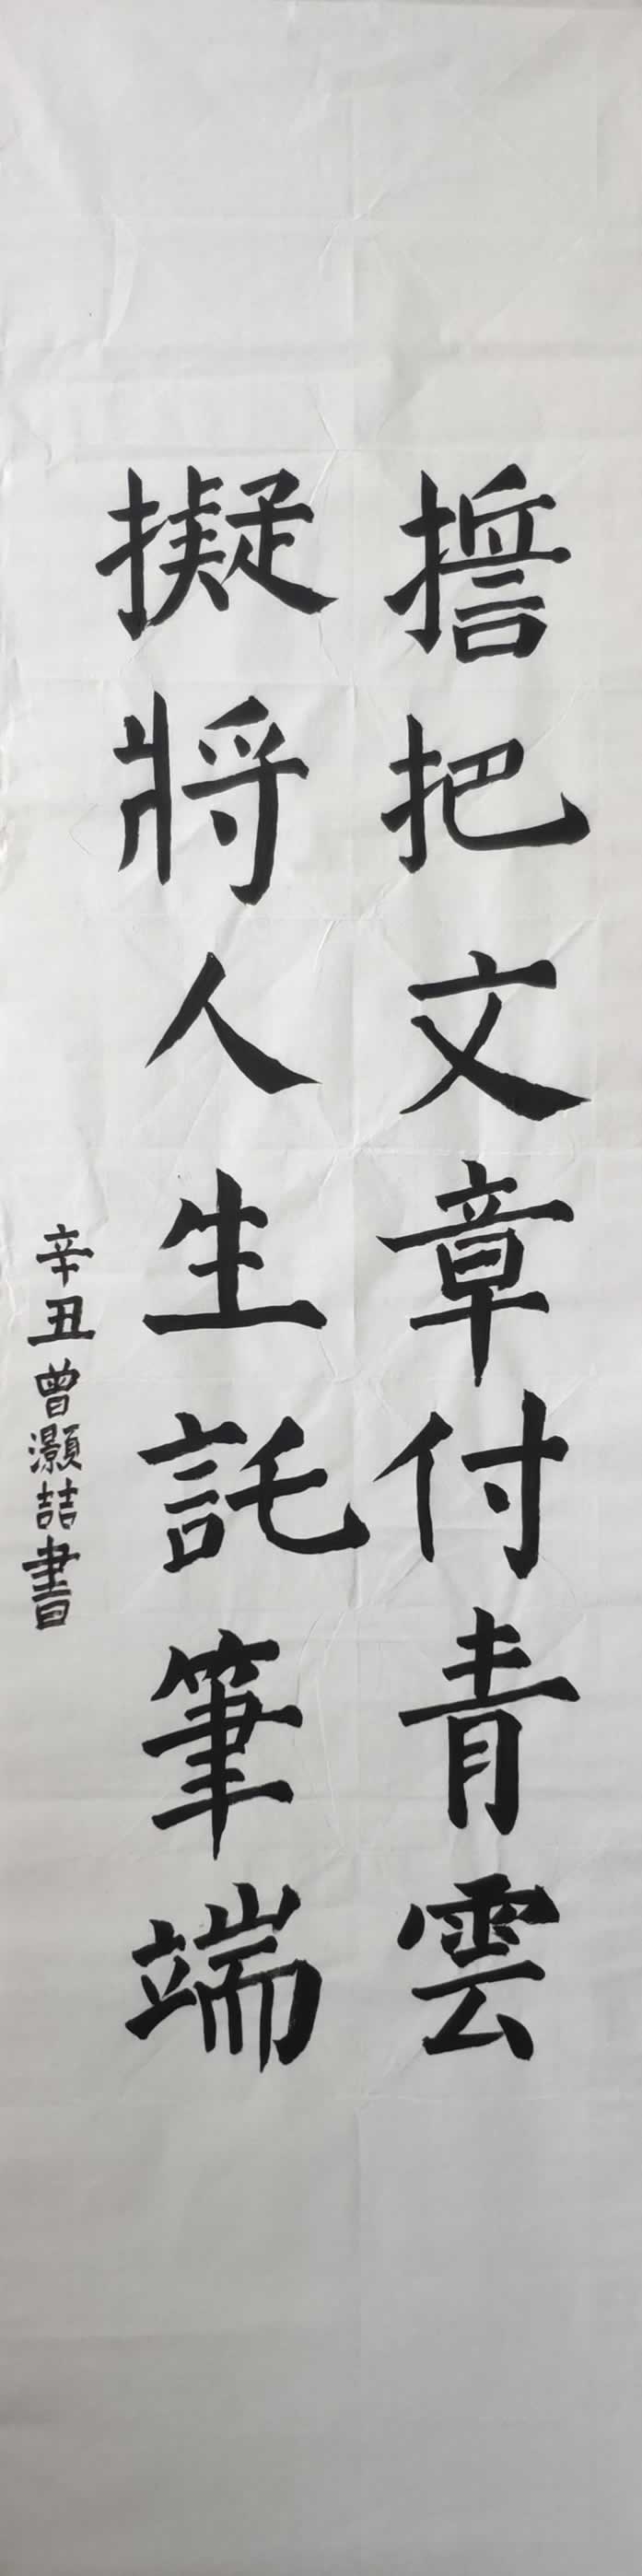 誓把文章付青雲
擬將人生託筆端
辛丑曾灝喆書